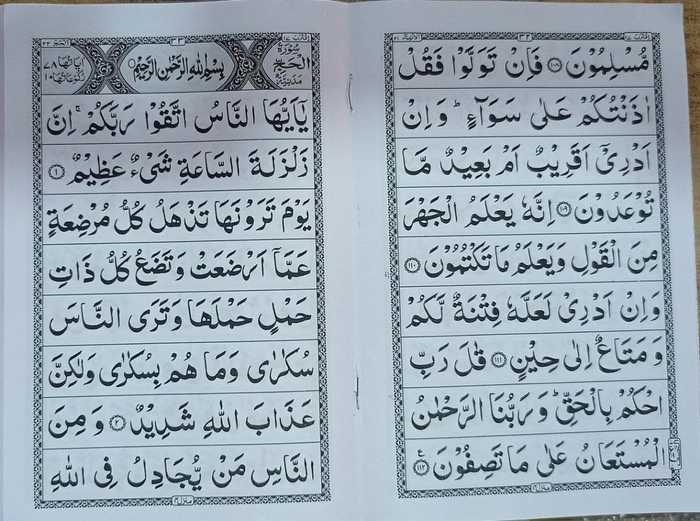 مُّسْلِمُوْنَ ۝۱۰۸ فَاِنْ تَوَلَّوْا فَقُلْ
اٰذَنْتُكُمْ عَلٰى سَوَآءٍ ؕ وَ اِنْ
اَدْرِىْۤ اَقَرِيْبٌ اَمْ بَعِيْدٌ مَّا
تُوْعَدُوْنَ ۝۱۰۹ اِنَّهٗ يَعْلَمُ الْجَهْرَ
مِنَ الْقَوْلِ وَيَعْلَمُ مَا تَكْتُمُوْنَ ۝۱۱۰
وَ اِنْ اَدْرِىْ لَعَلَّهٗ فِتْنَةٌ لَّكُمْ
وَ مَتَاعٌ اِلٰى حِيْنٍ ۝۱۱۱ قٰلَ رَبِّ
احْكُمْ بِالْحَقِّ ؕ وَ رَبُّنَا الرَّحْمٰنُ
الْمُسْتَعَانُ عَلٰى مَا تَصِفُوْنَ ۝۱۱۲
سُوْرَةُ الْحَجِّ مَدَنِيَّةٌ
بِسْمِ اللّٰهِ الرَّحْمٰنِ الرَّحِيْمِ
اٰيَاتُهَا ۷۸
رُكُوْعَاتُهَا ۱۰
يٰۤاَيُّهَا النَّاسُ اتَّقُوْا رَبَّكُمْ ۚ اِنَّ
زَلْزَلَةَ السَّاعَةِ شَىْءٌ عَظِيْمٌ ۝۱
يَوْمَ تَرَوْنَهَا تَذْهَلُ كُلُّ مُرْضِعَةٍ
عَمَّاۤ اَرْضَعَتْ وَ تَضَعُ كُلُّ ذَاتِ
حَمْلٍ حَمْلَهَا وَ تَرَى النَّاسَ
سُكٰرٰى وَ مَا هُمْ بِسُكٰرٰى وَلٰكِنَّ
عَذَابَ اللّٰهِ شَدِيْدٌ ۝۲ وَ مِنَ
النَّاسِ مَنْ يُّجَادِلُ فِى اللّٰهِ